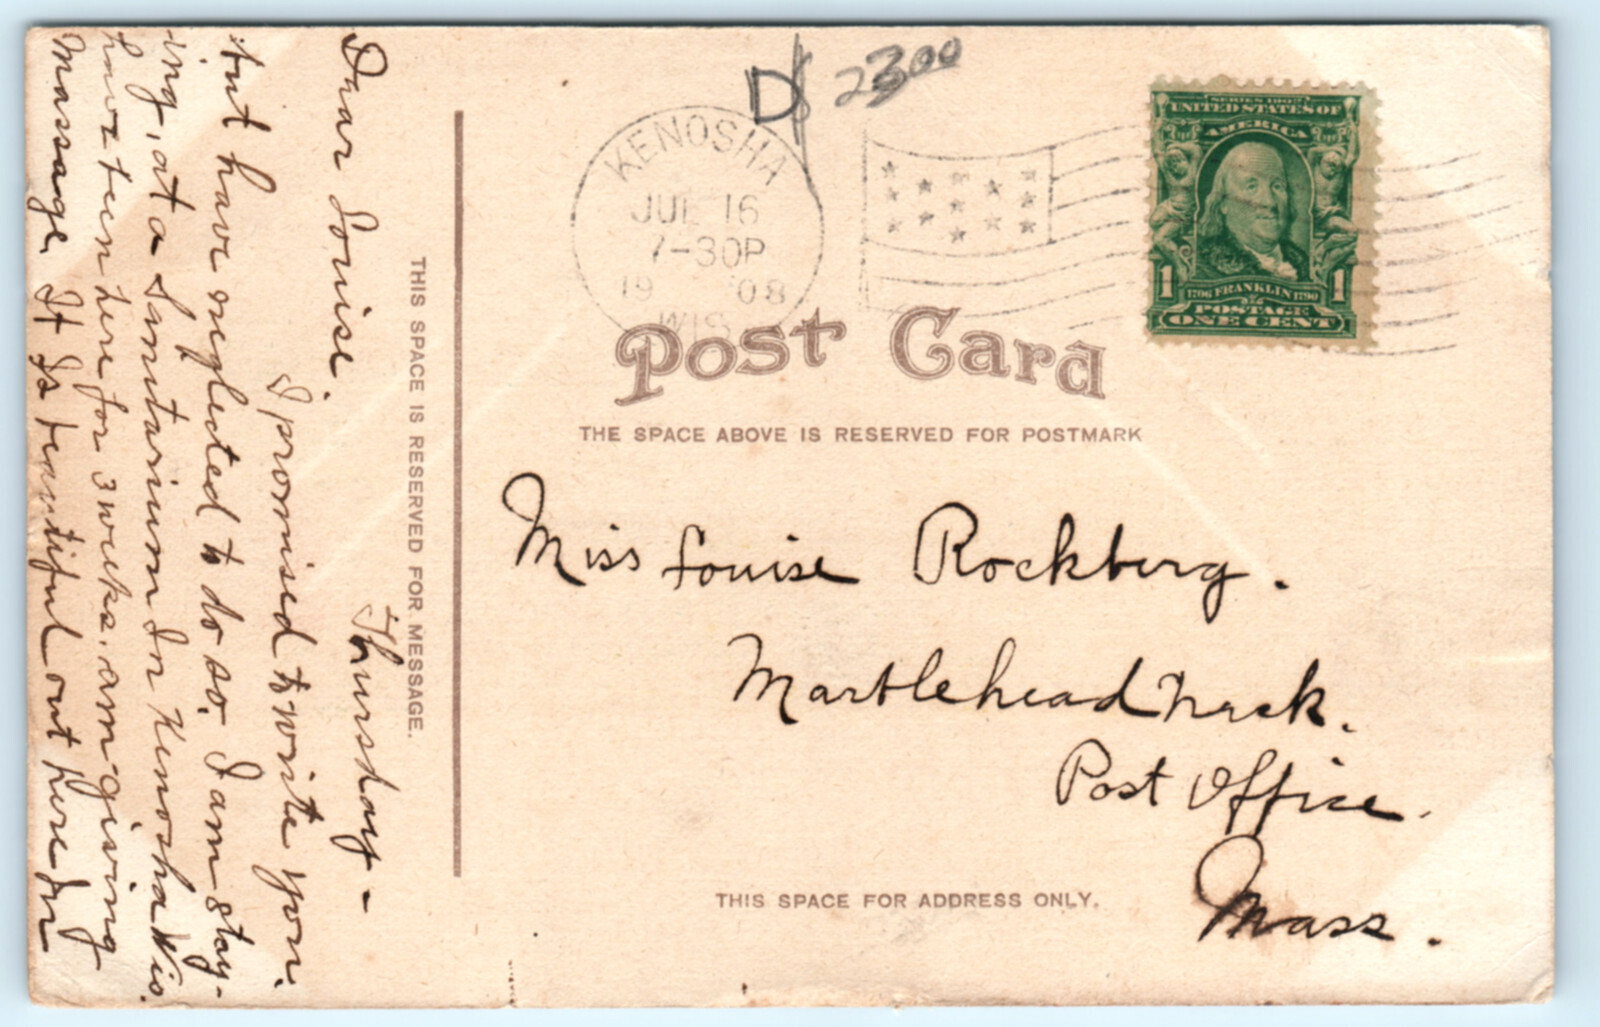 D $ 2300
KENOSHA
JUL 16
7-30P
19 08
WIS.
SERIES 1902
UNITED STATES OF
AMERICA
1 1706 FRANKLIN 1790 1
POSTAGE
ONE CENT
Post Card
THE SPACE ABOVE IS RESERVED FOR POSTMARK
THIS SPACE IS RESERVED FOR MESSAGE.
Thursday -
Dear Louise.
I promised to write you.
but have neglected to do so. I am stay-
ing, at a Sanitarium In Kenosha Wis.
have been here for 3 weeks. am giving
Massage. It Is beautiful out here In
Miss Louise Rockberg.
Marblehead Neck.
Post Office.
Mass.
THIS SPACE FOR ADDRESS ONLY.